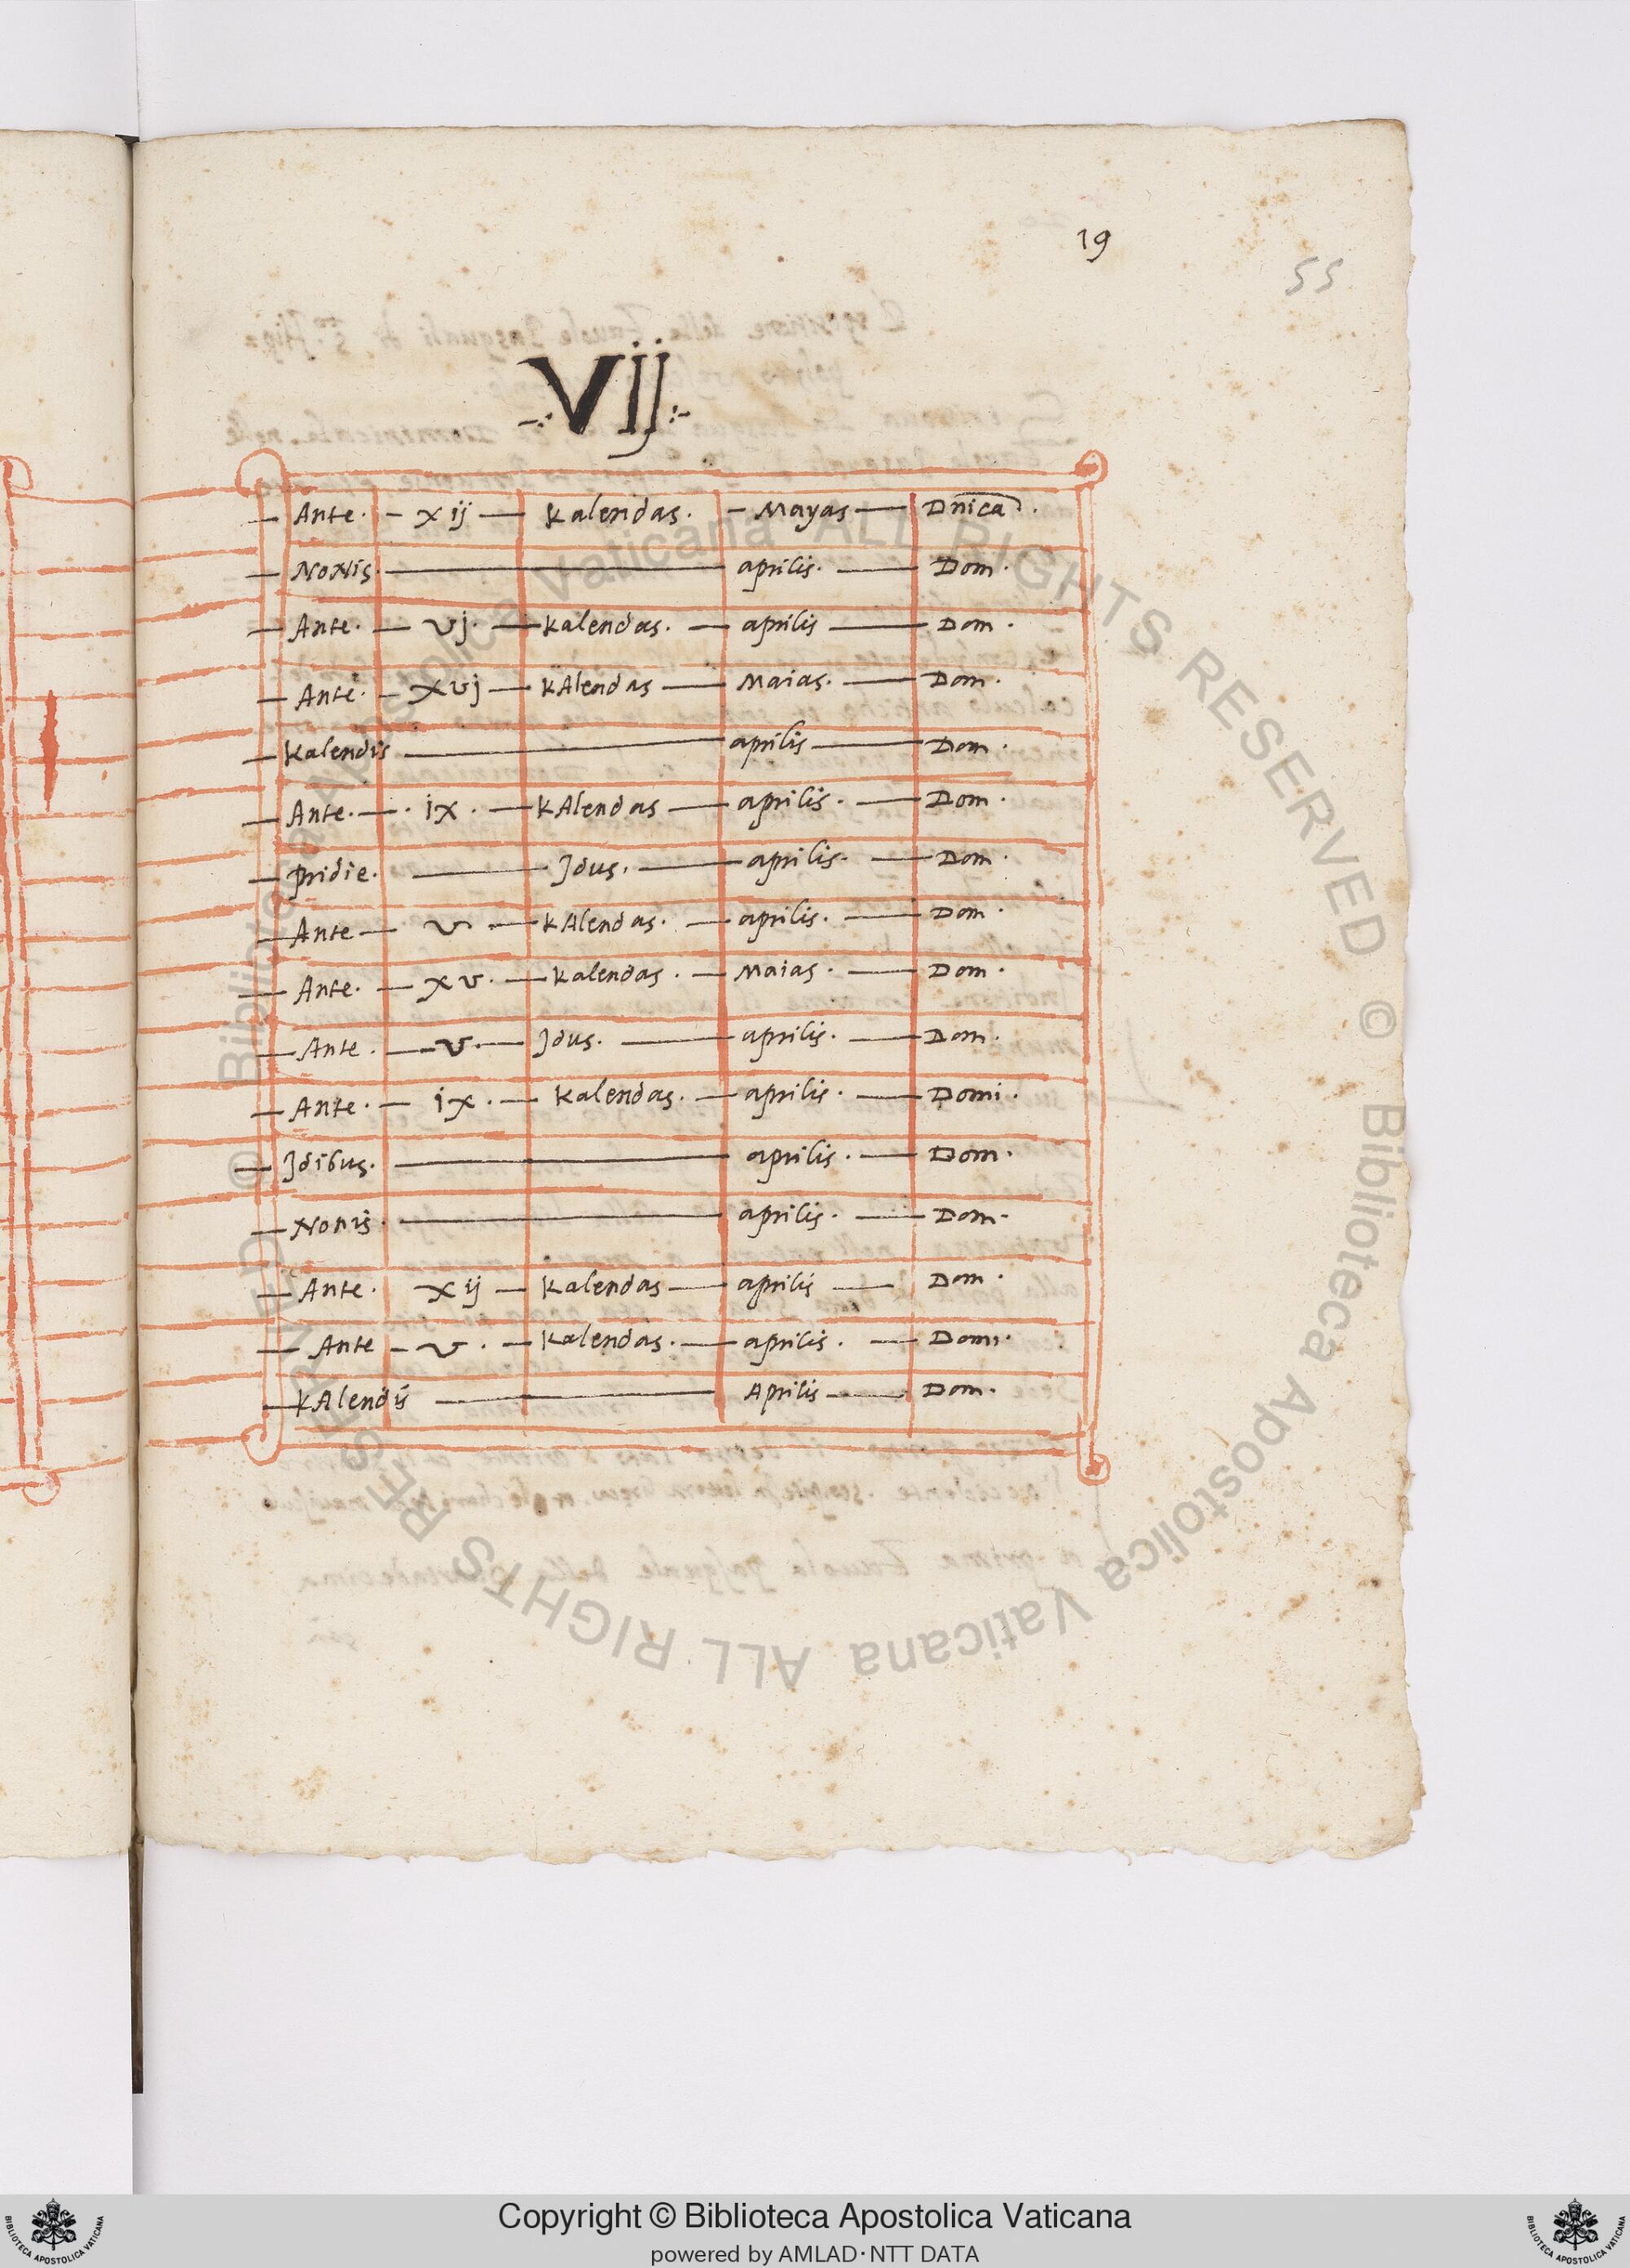 19
55
VIJ
Ante. xij Kalendas. Mayas Dnica.
NoNis. aprilis. Dom.
Ante. vj. Kalendas. aprilis Dom.
Ante. xvj KAlendas Maias. Dom.
Kalendis aprilis Dom.
Ante. ix. KAlendas aprilis. Dom.
pridie. Jdus. aprilis. Dom.
Ante v. KAlendas. aprilis. Dom.
Ante. xv. Kalendas. Maias. Dom.
Ante. v. Jdus. aprilis. Dom.
Ante. ix. Kalendas. aprilis. Domi.
Jdibus. aprilis. Dom.
Nonis. aprilis. Dom.
Ante. xij Kalendas aprilis Dom.
Ante v. Kalendas. aprilis. Dom.
KAlendis Aprilis Dom.
© Biblioteca Apostolica Vaticana ALL RIGHTS RESERVED © Biblioteca Apostolica Vaticana ALL RIGHTS RESERVED
Copyright © Biblioteca Apostolica Vaticana
powered by AMLAD·NTT DATA